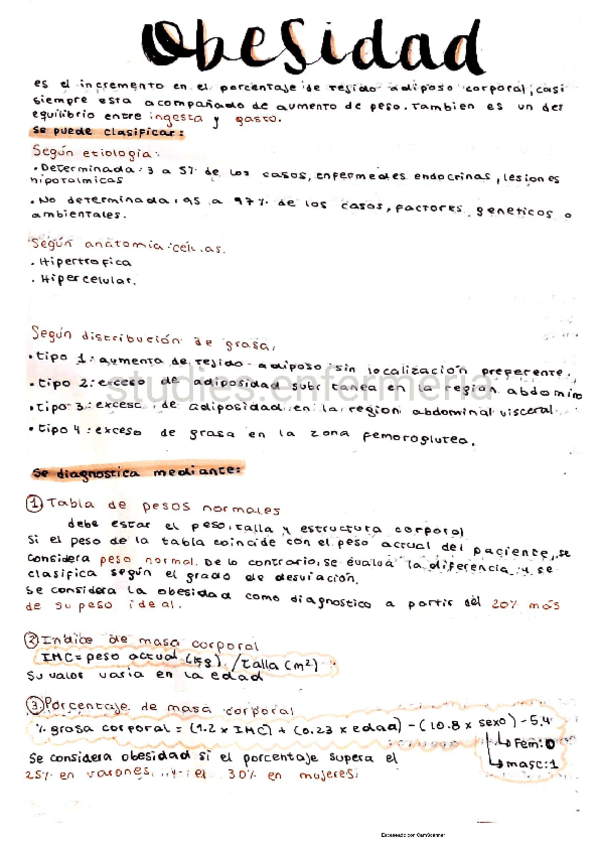 Obesidad
es el incremento en el porcentaje de tejido adiposo corporal, casi
siempre esta acompañado de aumento de peso. Tambien es un des
equilibrio entre ingesta y gasto.
se puede clasificar:
Según etiología:
• Determinada: 3 a 5% de los casos, enfermedes endocrinas, lesiones
hipotalmicas
• No determinada: 95 a 97% de los casos, factores geneticos o
ambientales.
Según anatomia células.
• Hipertrofica
• Hipercelular.
Según distribución de grasa.
• tipo 1: aumento de tejido adiposo sin localización preferente.
• tipo 2: exceso de adiposidad subctanea en la region abdomin
• tipo 3: exceso de adiposidad en la region abdominal visceral
• tipo 4: exceso de grasa en la zona femoroglutea.
studies.enfermeria
se diagnostica mediante:
① Tabla de pesos normales
debe estar el peso, talla y estructura corporal
Si el peso de la tabla coincide con el peso actual del paciente, se
considera peso normal. De lo contrario, se evalúa la diferencia y se
clasifica según el grado de desviación.
Se considera la obesidad como diagnostico a partir del 20% más
de su peso ideal.
② Indice de masa corporal
IMC = peso actual (kg) / talla (m²)
Su valor varia en la edad
③ Porcentaje de masa corporal
% grasa corporal = (1.2 x IMC) + (0.23 x edad) - (10.8 x sexo) - 5.4
Fem: 0
masc: 1
Se considera obesidad si el porcentaje supera el
25% en varones y el 30% en mujeres.
Escaneado con CamScanner